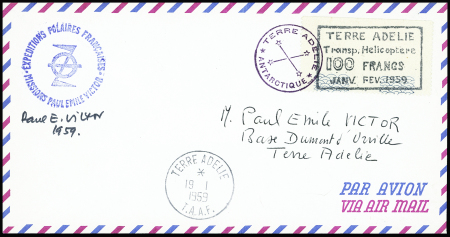 EXPEDITIONS POLAIRES FRANÇAISES
MISSIONS PAUL EMILE VICTOR
TERRE ADELIE
ANTARCTIQUE
TERRE ADELIE
Transp. Hélicoptère
100 FRANCS
JANV. FEV. 1959
Paul E. Victor
1959.
M. Paul Emile VICTOR
Base Dumont d'Urville
Terre Adelie
TERRE ADELIE
19 - 1
1959
T.A.A.F.
PAR AVION
VIA AIR MAIL